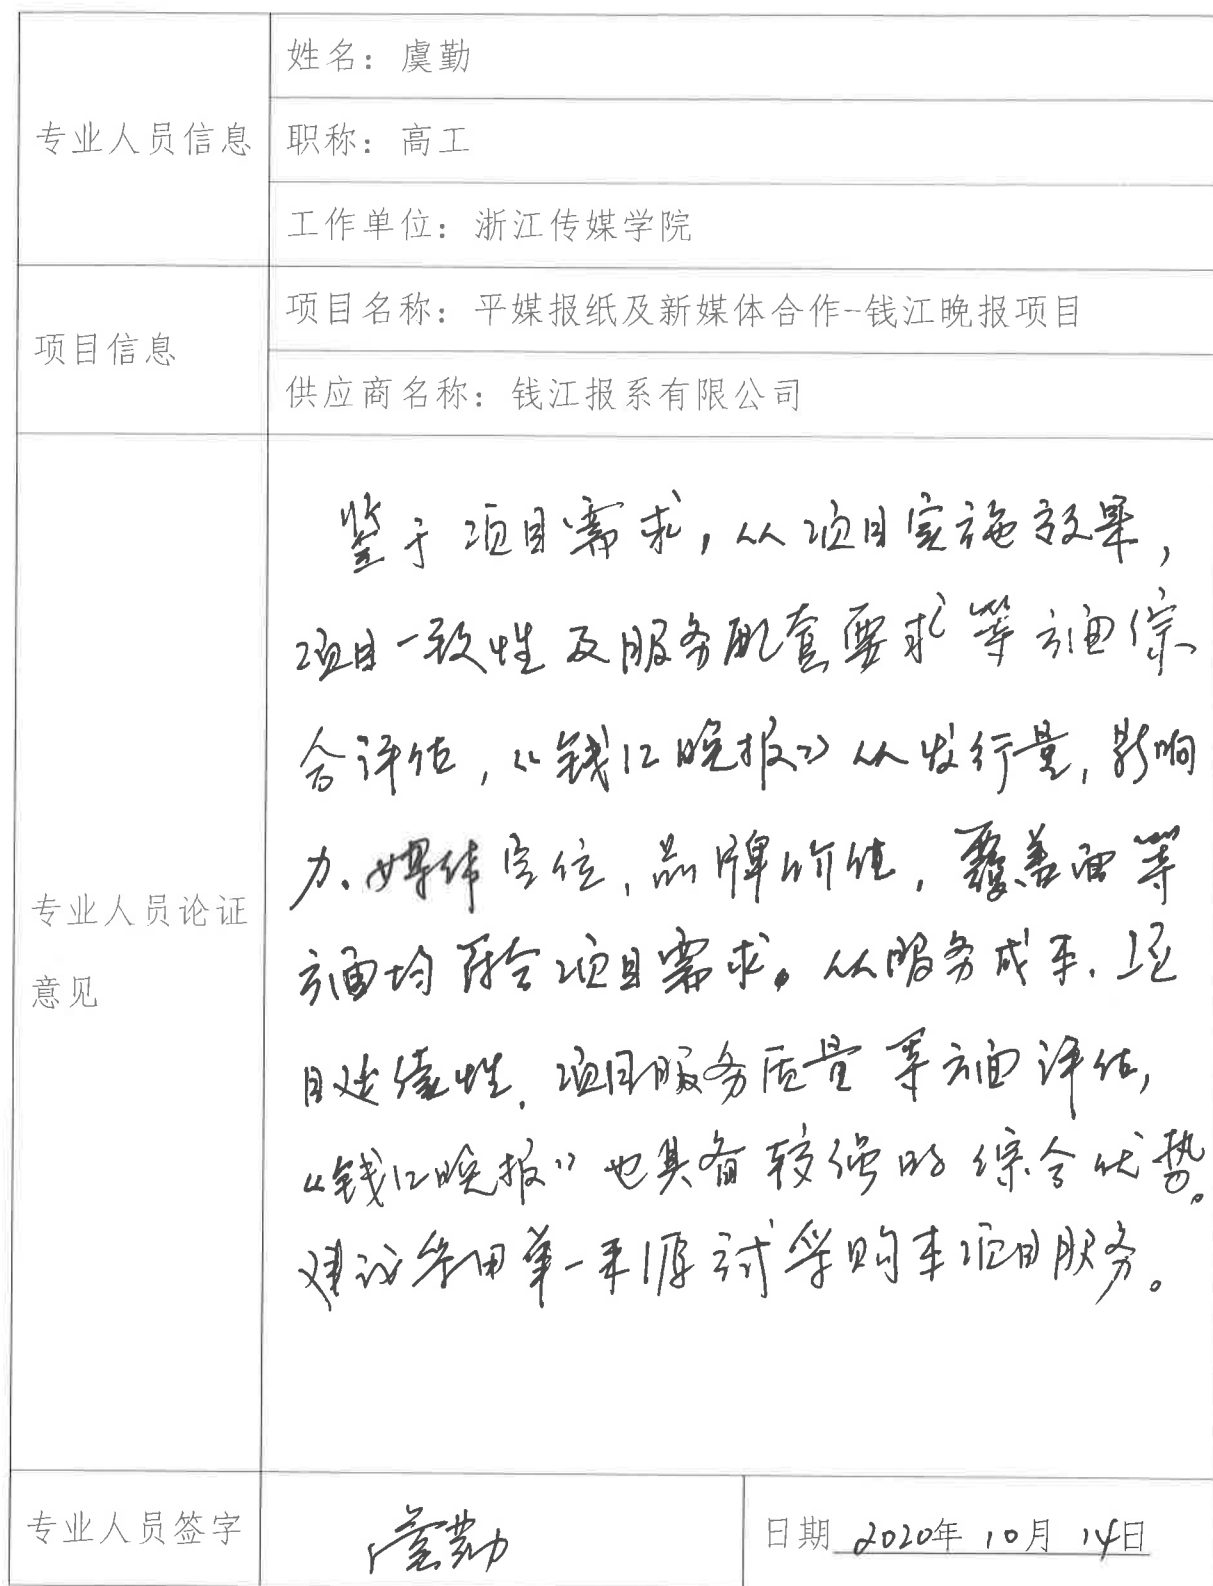 姓名：虞勤
专业人员信息
职称：高工
工作单位：浙江传媒学院
项目名称：平媒报纸及新媒体合作-钱江晚报项目
项目信息
供应商名称：钱江报系有限公司
鉴于项目需求，从项目实施效果，
项目一致性及服务配套要求等方面综
合评估，《钱江晚报》从发行量，影响
力、媒体定位，品牌价值，覆盖面等
专业人员论证
方面均符合项目需求。从服务成本、项
意见
目延续性，项目服务质量等方面评估，
《钱江晚报》也具备较强的综合优势。
建议采用单一来源方式采购本项目服务。
专业人员签字
虞勤
日期 2020年10月14日